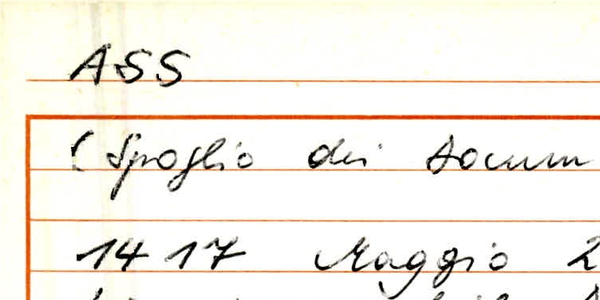 ASS
(Spoglio dei docum
1417 Maggio 2